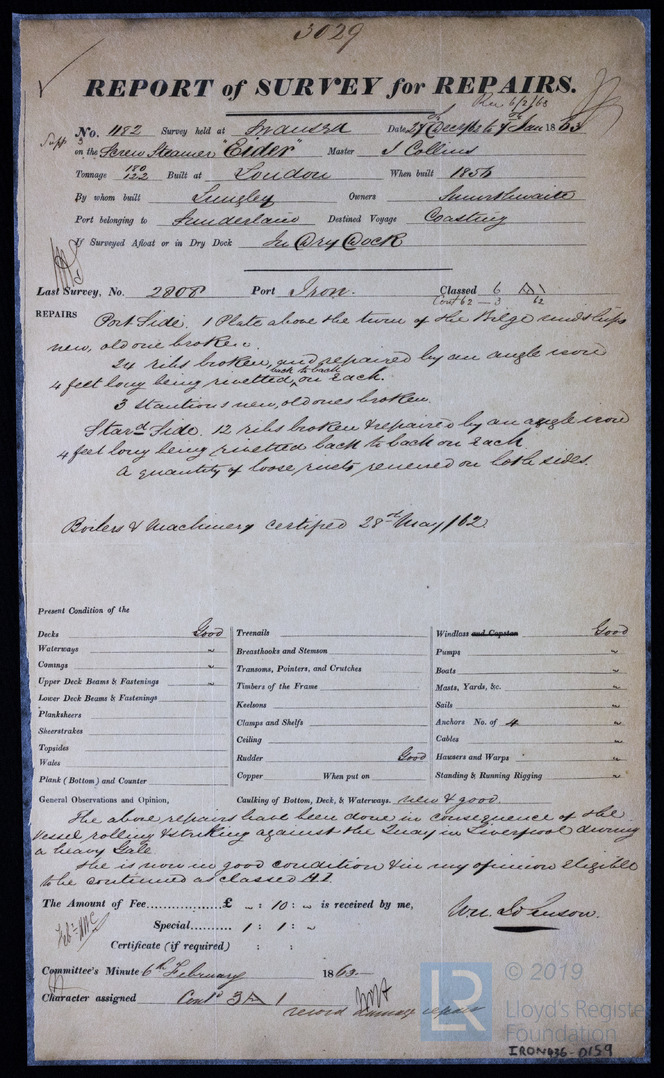 3029
REPORT of SURVEY for REPAIRS.
Rec 6/2/63
No. 1182 Survey held at Swansea Date, 27th Decr to 7th Jan 1863
on the Screw Steamer "Eider" Master J Collins
Tonnage 180 122 Built at London When built 1856
By whom built Langley Owners
Port belonging to Sunderland Destined Voyage Coasting
If Surveyed Afloat or in Dry Dock In Dry Dock
Last Survey, No. 2808 Port Iron. Classed 6 A 1
Cont 62 — 3 62
REPAIRS Port Side. 1 Plate above the turn of the Bilge midships
new, old one broken.
24 ribs broken, and repaired by an angle iron
4 feet long being rivetted back to back on each.
3 Stantions new, old ones broken.
Stard Side. 12 ribs broken & repaired by an angle iron
4 feet long being rivetted back to back on each
A quantity of loose rivets renewed on both sides.
Boilers & Machinery certified 28th May /62.
Present Condition of the
Decks Good
Waterways ~
Comings ~
Upper Deck Beams & Fastenings ~
Lower Deck Beams & Fastenings
Planksheers
Sheerstrakes
Topsides
Wales
Plank (Bottom) and Counter
Treenails
Breasthooks and Stemson
Transoms, Pointers, and Crutches
Timbers of the Frame
Keelsons
Clamps and Shelfs
Ceiling
Rudder Good
Copper When put on
Windlass and Capstan Good
Pumps ~
Boats ~
Masts, Yards, &c. ~
Sails ~
Anchors No. of 4 ~
Cables ~
Hawsers and Warps ~
Standing & Running Rigging ~
General Observations and Opinion, Caulking of Bottom, Deck, & Waterways. new & good
The above repairs have been done in consequence of the
vessel rolling & striking against the Quay in Liverpool during
a heavy Gale
She is now in good condition & in my opinion eligible
to be continued as classed A.1.
The Amount of Fee £ ~ : 10 : ~ is received by me,
Special 1 : 1 : ~
Certificate (if required) : :
Wm Johnson.
Committee's Minute 6th February 1863
Character assigned Contd 3 A 1
record damage repair
LR © 2019
Lloyd's Register
Foundation
IRON436-0159